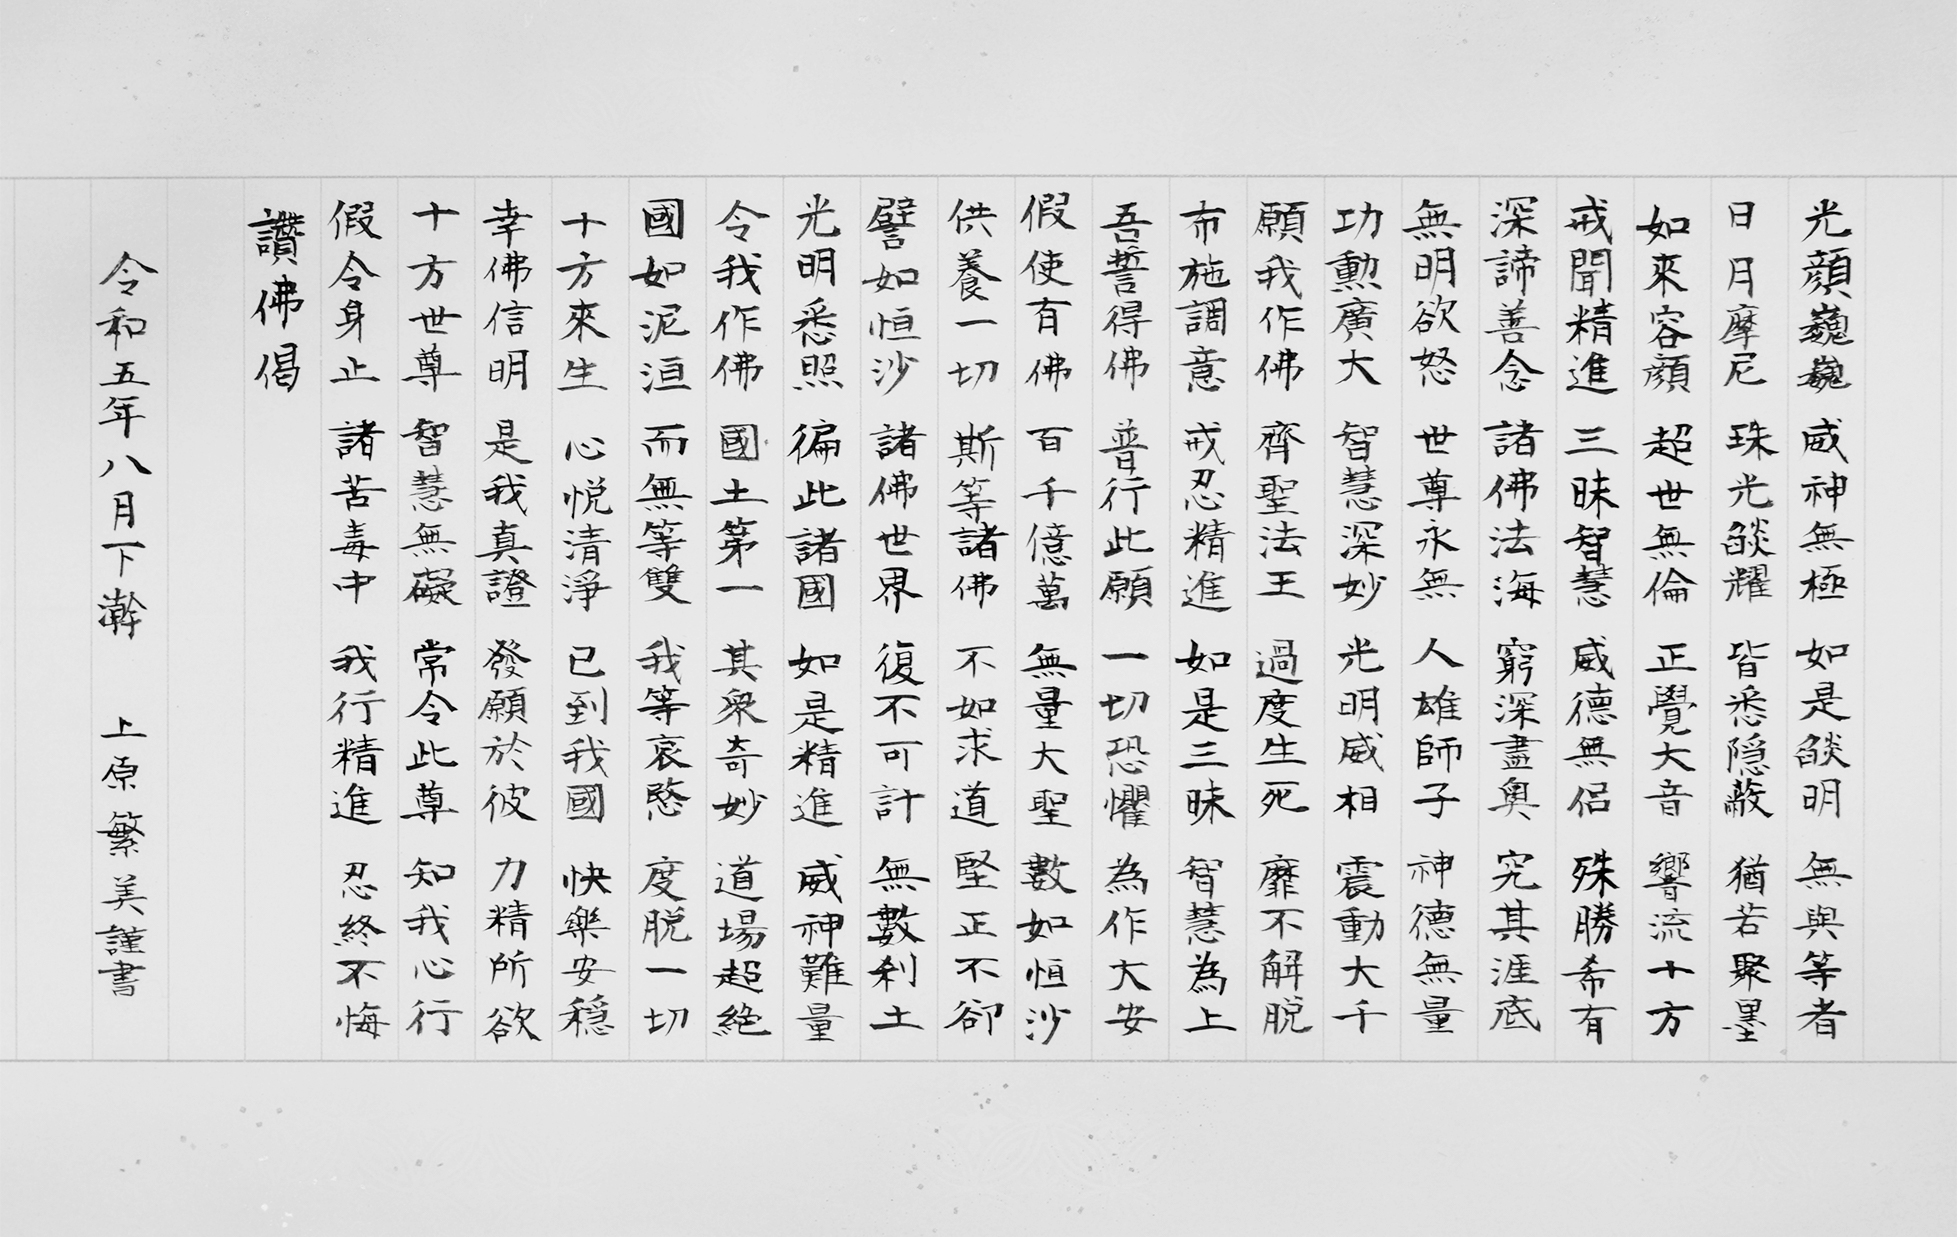 光顔巍巍 威神無極 如是燄明 無與等者
日月摩尼 珠光燄耀 皆悉隠蔽 猶若聚墨
如來容顔 超世無倫 正覺大音 響流十方
戒聞精進 三昧智慧 威德無侣 殊勝希有
深諦善念 諸佛法海 窮深盡奥 究其涯底
無明欲怒 世尊永無 人雄師子 神德無量
功勳廣大 智慧深妙 光明威相 震動大千
願我作佛 齊聖法王 過度生死 靡不解脱
布施調意 戒忍精進 如是三昧 智慧為上
吾誓得佛 普行此願 一切恐懼 為作大安
假使有佛 百千億萬 無量大聖 數如恒沙
供養一切 斯等諸佛 不如求道 堅正不郤
譬如恒沙 諸佛世界 復不可計 無數刹土
光明悉照 徧此諸國 如是精進 威神難量
令我作佛 國土第一 其衆奇妙 道場超絶
國如泥洹 而無等雙 我等哀愍 度脱一切
十方來生 心悦清淨 已到我國 快樂安穏
幸佛信明 是我真證 發願於彼 力精所欲
十方世尊 智慧無礙 常令此尊 知我心行
假令身止 諸苦毒中 我行精進 忍終不悔
讚佛偈
令和五年八月下澣 上原繁美謹書